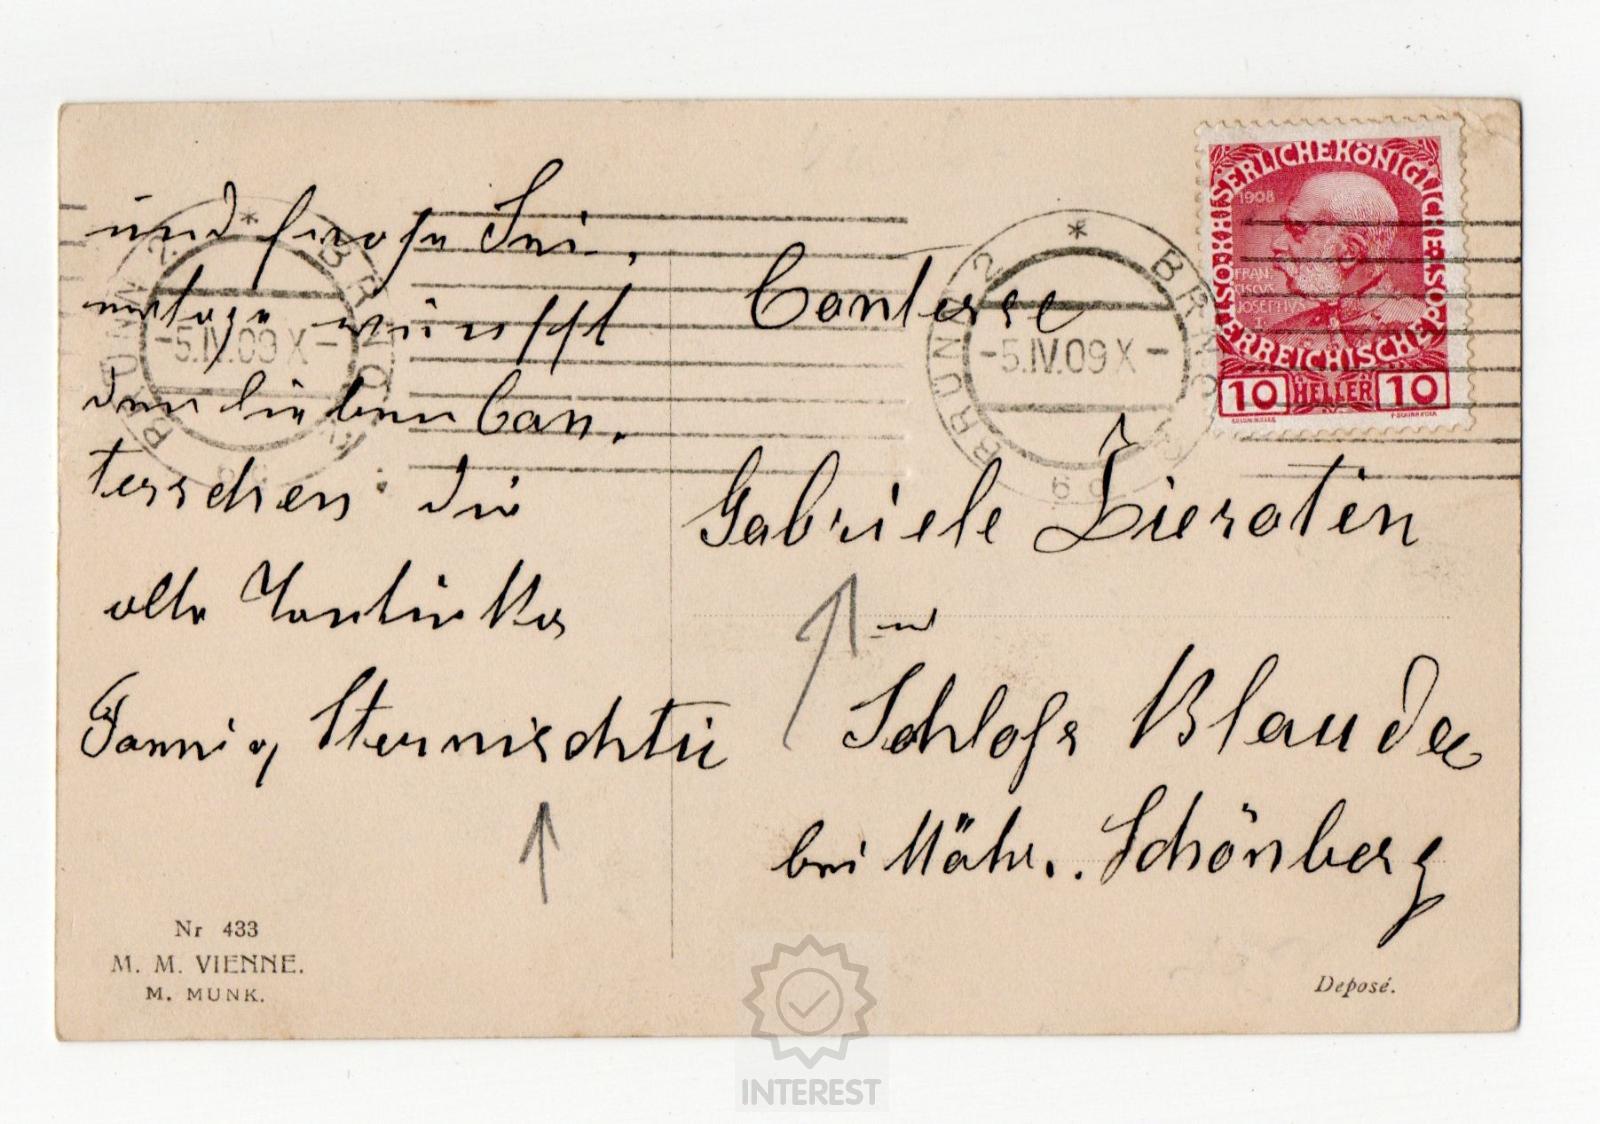 und frohe Fei,
ertage wünscht
den lieben Con,
tesschen die
alte
Fanni v, Sternischtie
Contesse
Gabriele Zierotin
in
Schloss Blauda
bei Mähr. Schönberg
BRÜNN 2 * BRNO 2
-5.IV.09 X-
BRÜNN 2 * BRNO 2
-5.IV.09 X-
09
KAISERLICHE KÖNIGLICHE ÖSTERREICHISCHE POST
1908
FRAN-
CISCVS
JOSEPHVS I
10 HELLER 10
Nr 433
M. M. VIENNE.
M. MUNK.
Deposé.
INTEREST